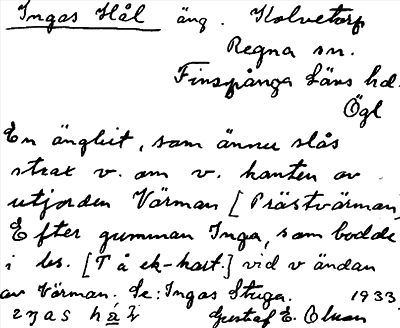 Ingas Hål äng. Kolvetorp
Regna sn.
Finspånga Läns hd.
Ögl
En ängbit, som ännu slås
strax v. om v. kanten av
utjorden Värman [Prästvärman]
Efter gumman Inga, som bodde
i bs. [T å ek-kart.] vid v ändan
av Värman; Se: Ingas Stuga. 1933
Gustaf E. Olson